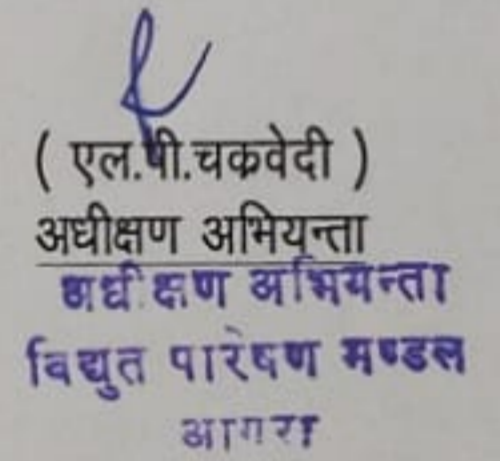 ( एल.पी.चक्रवेदी )
अधीक्षण अभियन्ता
अधीक्षण अभियन्ता
विद्युत पारेषण मण्डल
आगरा